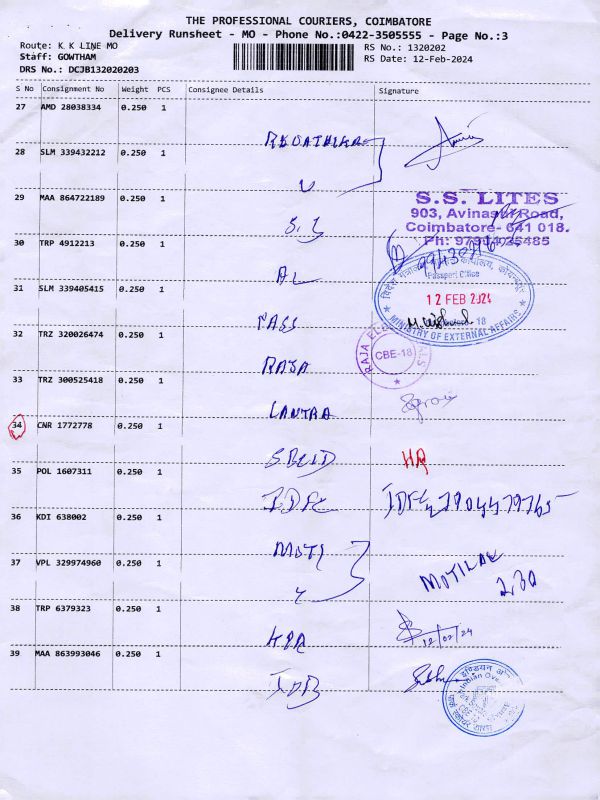 THE PROFESSIONAL COURIERS, COIMBATORE
Delivery Runsheet - MO - Phone No.:0422-3505555 - Page No.:3
Route: K K LINE MO
RS No.: 1320202
Staff: GOWTHAM
RS Date: 12-Feb-2024
DRS No.: DCJB132020203
S No Consignment No Weight PCS Consignee Details Signature
27 AMD 28038334 0.250 1
28 SLM 339432212 0.250 1
29 MAA 864722189 0.250 1
S.S. LITES
903, Avinashi Road,
Coimbatore- 641 018.
30 TRP 4912213 0.250 1
AL
Passport Office
31 SLM 339405415 0.250 1
12 FEB 2024
PASS
MINISTRY OF EXTERNAL AFFAIRS
32 TRZ 320026474 0.250 1
RAJA
CBE-18
33 TRZ 300525418 0.250 1
34 CNR 1772778 0.250 1
HA
35 POL 1607311 0.250 1
IDFC
36 KDI 638002 0.250 1
MOTI
37 VPL 329974960 0.250 1
MOTILAL
2.30
38 TRP 6379323 0.250 1
12/02/24
39 MAA 863993046 0.250 1